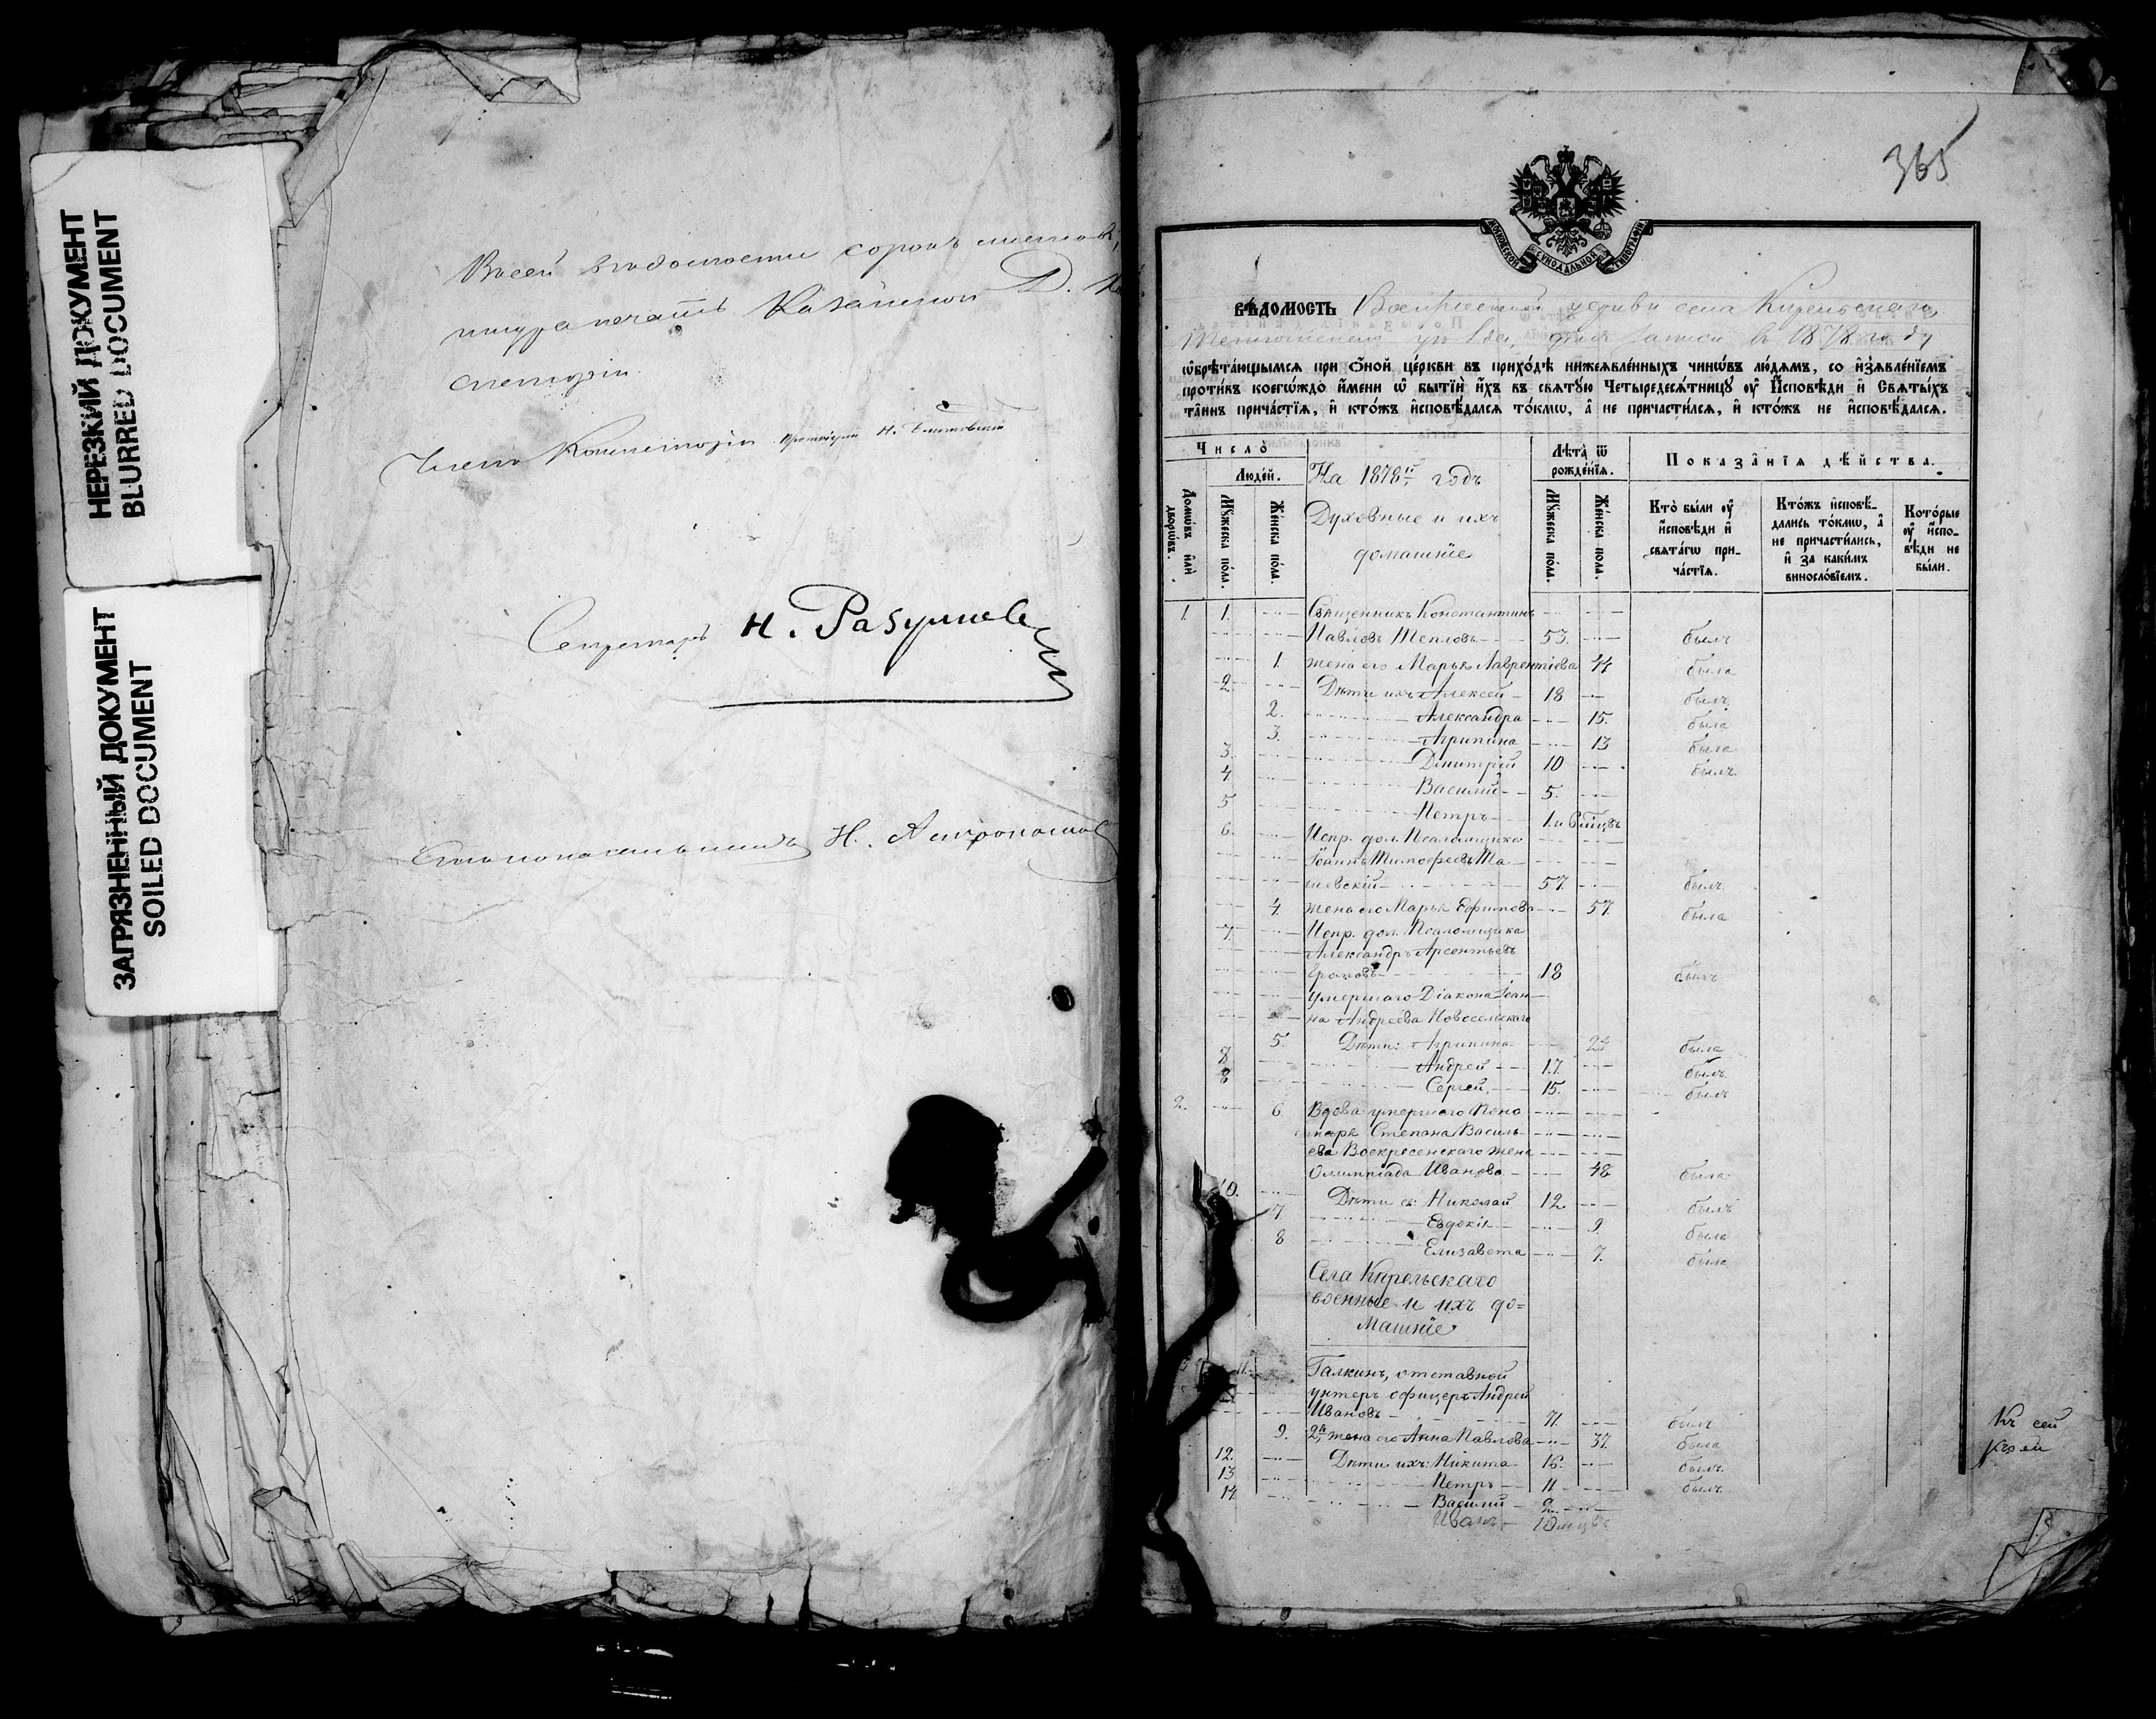 НЕРЕЗКИЙ ДОКУМЕНТ
BLURRED DOCUMENT
ЗАГРЯЗНЕННЫЙ ДОКУМЕНТ
SOILED DOCUMENT
Въ сей вѣдомости сорокъ листовъ,
шнуръ печать Казанской Д. Ко
систоріи.
Членъ Консисторіи Протоіерей Н.
Секретарь Н. Разумов
Столоначальникъ Н.
365
МОСКОВСКОЙ СУНОДАЛЬНОЙ ТИПОГРАФІИ
ВѢДОМОСТЬ церкви села Кирельскаго,
Тетюшскаго уѣзда, для записи въ 1878 году
ѡбрѣта́ющымсѧ при ѻ҆́ной це́ркви въ прихо́дѣ нижеѧвле́нныхъ чинѡ́въ лю́демъ, со и҆з̾ѧвле́нїемъ
проти́въ коегѡ́ждо и҆́мени ѡ҆ бытїѝ и҆́хъ въ свѧтꙋ́ю Четыредесѧ́тницꙋ ᲂу҆ И҆́сповѣди и҆ Свѧты́хъ
та̑инъ прича́стїѧ, и҆ кто́жъ и҆сповѣ́далсѧ то́кмѡ, а҆ не причасти́лсѧ, и҆ кто́жъ не и҆сповѣ́далсѧ.
Число̀
Домѡ́въ и҆лѝ дворѡ́въ.
Люде́й.
Мꙋ́жеска по́ла.
Же́нска по́ла.
На 1878й годъ
Духовные и ихъ
домашніе
Лѣта̀ ѿ рожде́нїѧ.
Мꙋ́жеска по́ла.
Же́нска по́ла.
Показа̑нїѧ дѣ́йства.
Кто̀ бы́ли ᲂу҆ и҆́сповѣди и҆ свѧта́гѡ прича́стїѧ.
Кто́жъ и҆сповѣ́дались то́кмѡ, а҆ не причасти́лись, и҆ за каки́мъ винсло́вїемъ.
Кото́рые ᲂу҆ и҆́сповѣди не бы́ли.
1. 1. Священникъ Константинъ
Павловъ Тепловъ 53. былъ
1. жена его Марья Лаврентіева 44 была
2. Дѣти ихъ: Алексей 18 былъ
2. Александра 15. была
3. Агрипина 13 была
3. Дмитрій 10 былъ
4. Василий 5.
5 Петръ 1 и 6 мѣцвъ
6. Испр. дол. Псаломщика
Іоаннъ Тимоѳеевъ Та
шевскій 57. былъ
4. жена его Марья Ефимова 57. была
7. Испр. дол. Псаломщика
Александръ Арсентьевъ
18 былъ
умершаго Діакона Іоан
на Андреева Новосельскаго
5. Дѣти: Агрипина 24 была
8 Андрей 17. былъ
8 Сергей 15. былъ
2. 6. Вдова умершаго Поно
маря Степана Василь
ева Воскресенскаго жена
Олимпіада Иванова 48 была
10. Дѣти ея: Николай 12 былъ
7. Евдокія 9. была
8 Елизавета 7. была
Села Кирельскаго
военные и ихъ до=
машніе
11. Галкинъ, отставной
унтеръ офицеръ Андрей
Ивановъ 71. былъ
9. 2я жена его Анна Павлова 37. была
12. Дѣти ихъ: Никита 16. былъ
13 Петръ 11 былъ
14. Василий 2
Иванъ 10 мцвъ
Къ сей
Къ сей